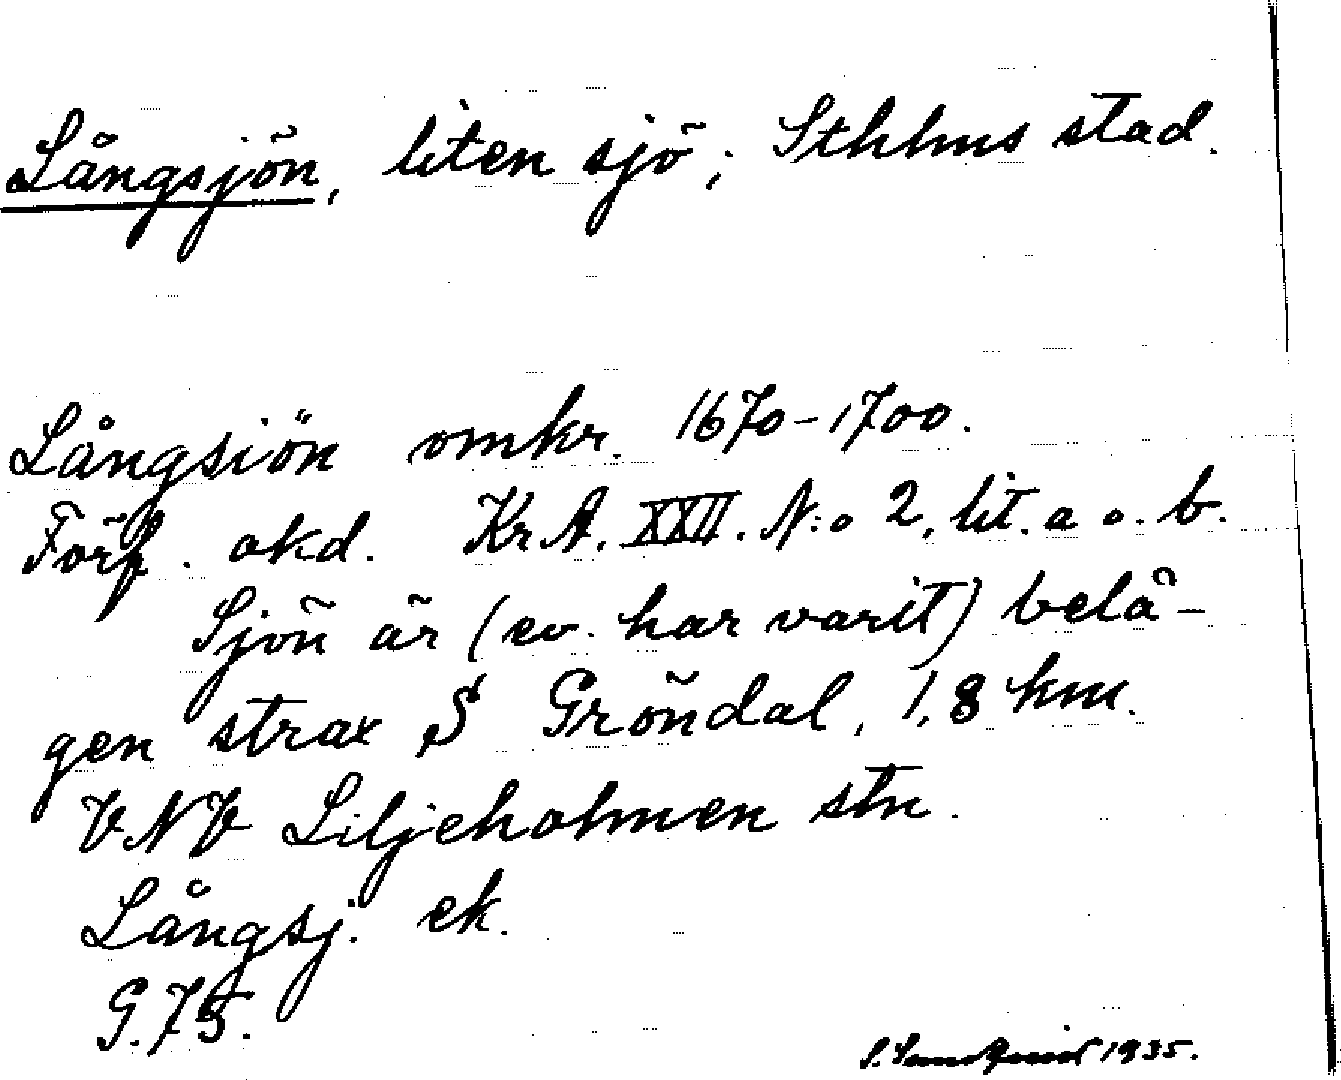 Långsjön, liten sjö; Sthlms stad.
Långsiön omkr. 1670-1700.
Förf. okd. KrA. XXII. N:o 2, lit. a o. b.
Sjön är (ev. har varit) belä-
gen strax S Gröndal, 1,8 km.
VNV Liljeholmen stn.
Långsj. ek.
G. 75.
1935.